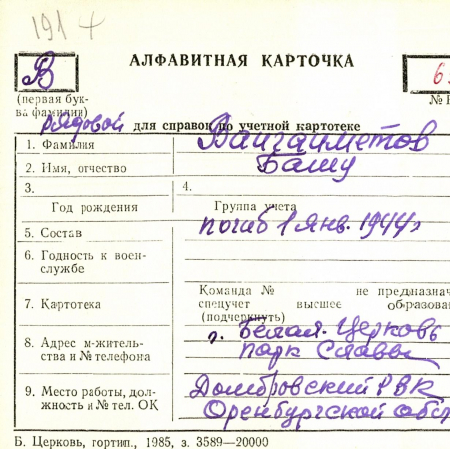 1914
АЛФАВИТНАЯ КАРТОЧКА
В
6
(первая бук-
ва фамилии)
№
рядовой для справок по учетной картотеке
1. Фамилия Вайгамметов
2. Имя, отчество Башу
3.
4.
Год рождения
Группа учета
5. Состав погиб 1 янв. 1944г
6. Годность к воен-
службе
Команда № не предназнач
7. Картотека спецучет высшее образова
(подчеркнуть)
8. Адрес м-житель- г. Белая-Церковь
ства и № телефона парк Славы
9. Место работы, дол- Домбровский РВК
жность и № тел. ОК Оренбургской обл
Б. Церковь, гортип., 1985, з. 3589—20000